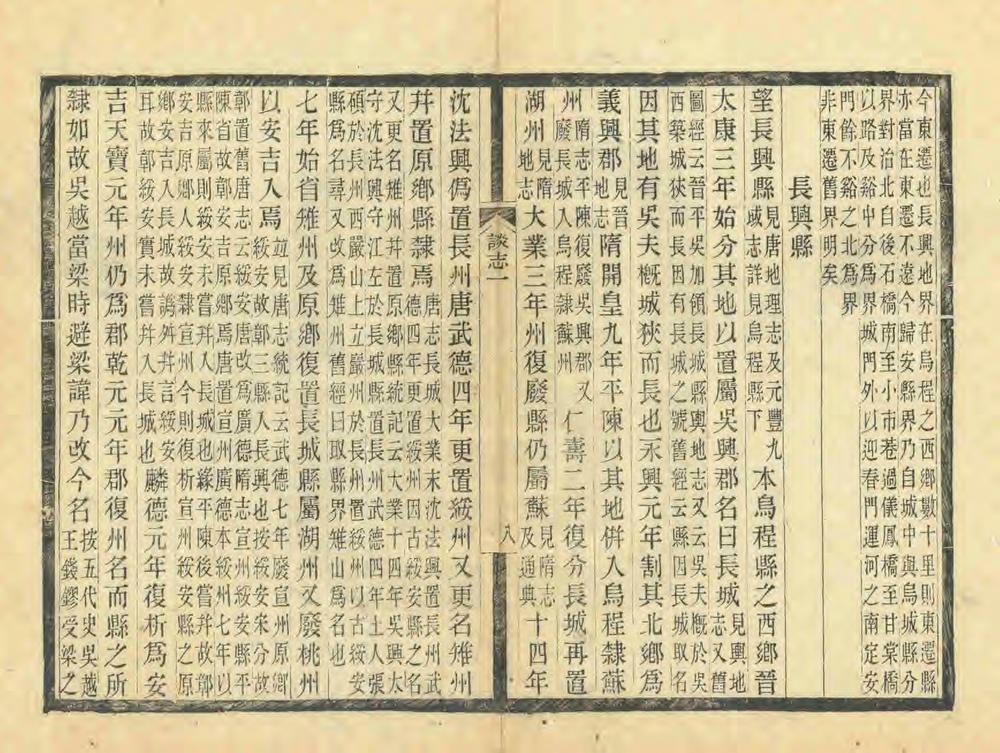 今東遷也長興地界在烏程之西鄉數十里則東遷縣
亦當在東遷不遠今歸安縣界乃自城中與烏城縣分
界對治北自後石橋南至小市巷過儀鳳橋至甘棠橋
以路及谿中分為界城門外以迎春門運河之南定安
門餘不谿之北為界
非東遷舊界明矣
長興縣
望長興縣見唐地理志及元豐九
域志詳見烏程縣下本烏程縣之西鄉晉
太康三年始分其地以置屬吳興郡名曰長城見輿地
志又舊
圖經云晉平吳加領長城縣輿地志又云吳夫槪於吳
西築城狹而長因有長城之號舊經云縣因長城取名
因其地有吳夫槪城狹而長也永興元年割其北鄉為
義興郡見晉
地志隋開皇九年平陳以其地併入烏程隸蘇
州隋志平陳復廢吳興郡又
廢長城入烏程隸蘇州仁壽二年復分長城再置
湖州見隋
地志大業三年州復廢縣仍屬蘇見隋志
及通典十四年
談志一
八
沈法興偽置長州唐武德四年更置綏州又更名雉州
并置原鄉縣隸焉唐志長城大業末沈法興置長州武
德四年更置綏州因古綏安縣之名
又更名雉州并置原鄉縣統記云大業十四年吳興太
守沈法興守江左於長城縣置長州武德四年土人張
碩於長州西嚴山上立嚴州於長州置綏州以古綏安
縣為名尋又改為雉州舊經曰取縣界雉山為名也
七年始省雉州及原鄉復置長城縣屬湖州又廢桃州
以安吉入焉竝見唐志統記云武德七年廢宣州原鄉
綏安故鄣三縣入長興也按綏安來分故
鄣置舊唐志云綏安唐改為廣德隋志宣州綏安縣平
陳省故鄣安吉原鄉焉唐置宣州廣德本綏州七年以
縣來屬則綏安未嘗并入長城也緣平陳後嘗并故鄣
安吉原鄉人綏安隸宣州今則復析宣州綏安縣之原
鄉安吉入長城故譌舛并言綏安
耳故鄣綏安實未嘗并入長城也麟德元年復析為安
吉天寶元年州仍為郡乾元元年郡復州名而縣之所
隸如故吳越當梁時避梁諱乃改今名按五代史吳越
王錢鏐受梁之